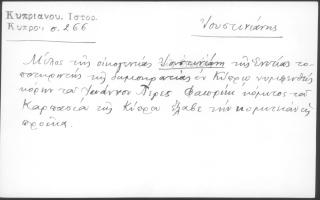 Κυπριανου. Ιστορ.
Κυπρου σ. 266
Ιουστινιάνης
Μέλος τῆς οἰκογενείας Ιουστινιάνη τῆς Ενετίας το-
ποτηρητὴς τῆς δημοκρατίας ἐν Κύπρῳ νυμφευθεὶς
κόρην τοῦ Ιωάννου Πέρες Φαβρίκη κόμητος τοῦ
Καρπασίου τῆς Κύπρου ἔλαβε τὴν κομητείαν ὡς
προῖκα